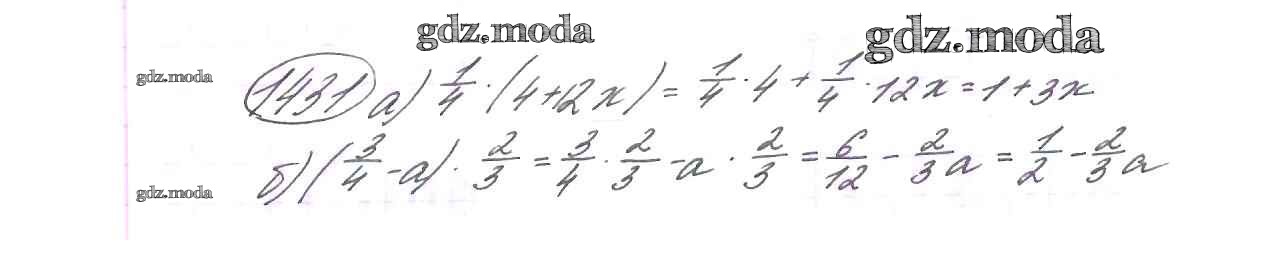 gdz.moda gdz.moda
gdz.moda
1431 а) 1/4 · (4+12x) = 1/4 · 4 + 1/4 · 12x = 1+3x
б) (3/4 - a) · 2/3 = 3/4 · 2/3 - a · 2/3 = 6/12 - 2/3 a = 1/2 - 2/3 a
gdz.moda